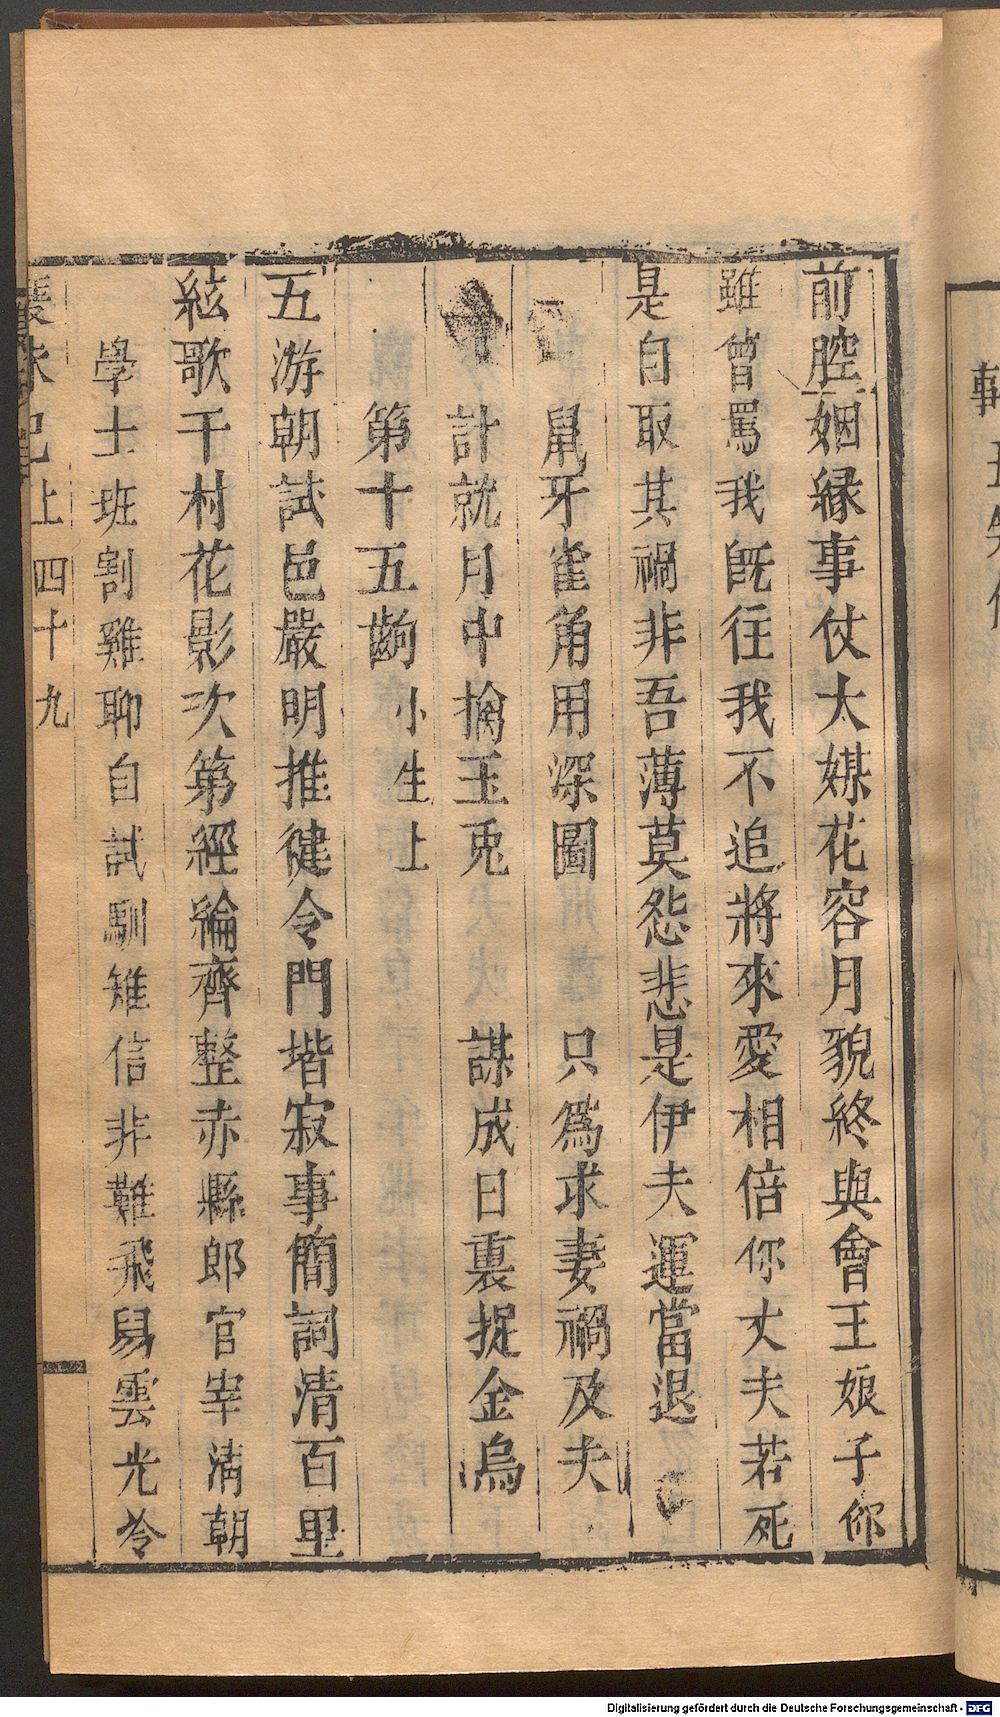 前腔姻縁事仗太媒花容月貌終與會王娘子你
雖曾罵我旣往我不追將來愛相倍你丈夫若死
是自取其禍非吾薄莫怨悲是伊夫運當退
鼠牙雀角用深圖 只爲求妻禍及夫
計就月中擒玉兎 謀成日裏捉金烏
第十五齣 小生上
五游朝試邑嚴明推健令門堦寂事簡詞清百里
絃歌千村花影次第經綸齊整赤縣郎官宰清朝
學士班割雞聊自試馴雉信非難飛舄雲光冷
上 四十九
Digitalisierung gefördert durch die Deutsche Forschungsgemeinschaft - DFG